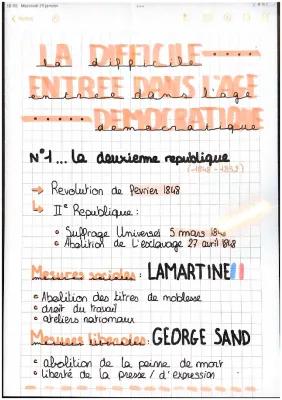 Mercredi 25 janvier
LA DIFFICILE
la difficile
ENTREE DANS L'AGE
entree dans l'age
DEMOCRATIQUE
democratique
N°1... la deuxieme republique
Revolution de fevrier 1848
II° Republique :
Suffrage Universel 5 mars 1848
Abolition de l'esclavage 27 avril 1848
Mesures sociales : LAMARTINE
Abolition des titres de noblesse
droit du travail
ateliers nationaux
Mesures liberales : GEORGE SAND
abolition de la peinne de mort
liberté de la presse / d'expression